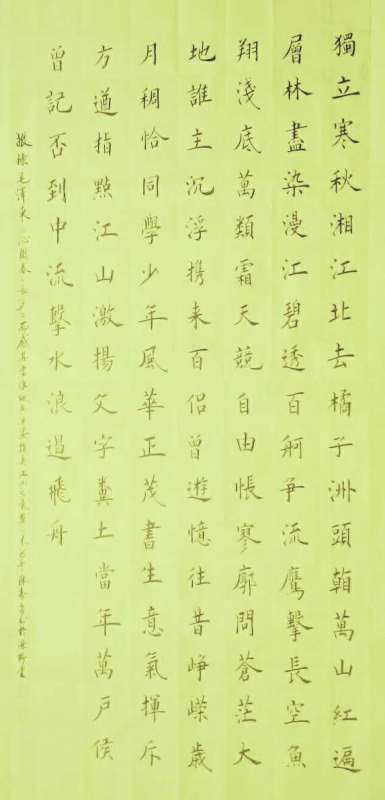 獨立寒秋湘江北去橘子洲頭萬山紅遍
層林盡染漫江碧透百舸爭流鷹擊長空魚
翔淺底萬類霜天競自由悵寥廓問蒼茫大
地誰主沉浮携来百侣曾遊憶往昔崢嶸歲
月稠恰同學少年風華正茂書生意氣揮斥
方遒指點江山激揚文字糞土當年萬戶侯
曾記否到中流擊水浪遏飛舟
敬錄毛澤東沁園春長沙